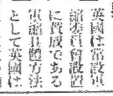 英國は常設軍
縮委員會設置
に賛成である
軍縮具體方法
として英國は